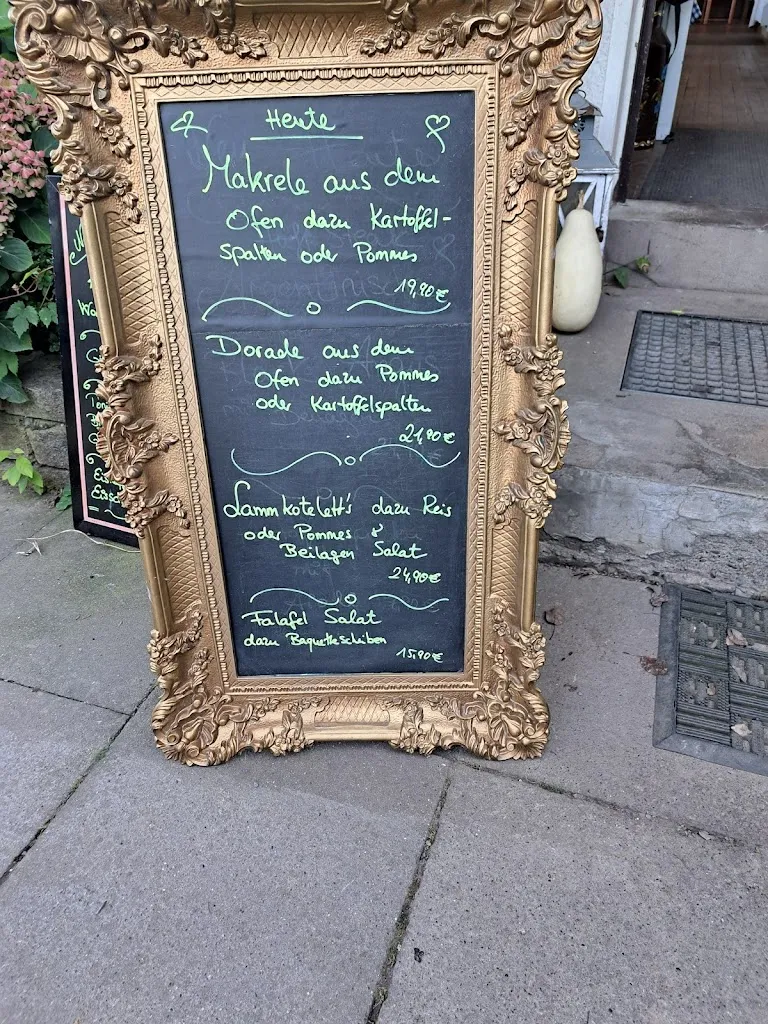 Heute
Makrele aus dem
Ofen dazu Kartoffel-
spalten oder Pommes
19,90€
Dorade aus dem
Ofen dazu Pommes
oder Kartoffelspalten
21,90€
Lammkotelett's dazu Reis
oder Pommes &
Beilagen Salat
24,90€
Falafel Salat
dazu Baguettescheiben
15,90€